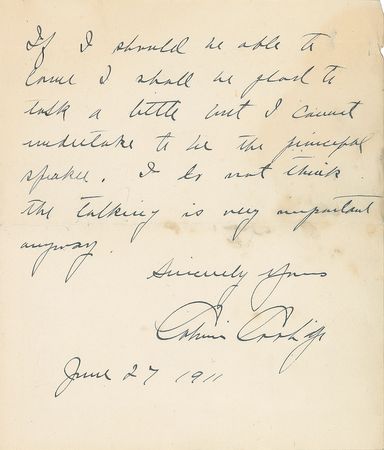 If I should be able to
come I shall be glad to
talk a little but I cannot
undertake to be the principal
speaker. I do not think
the talking is very important
anyway.
Sincerely Yours
Calvin Coolidge
June 27 1911